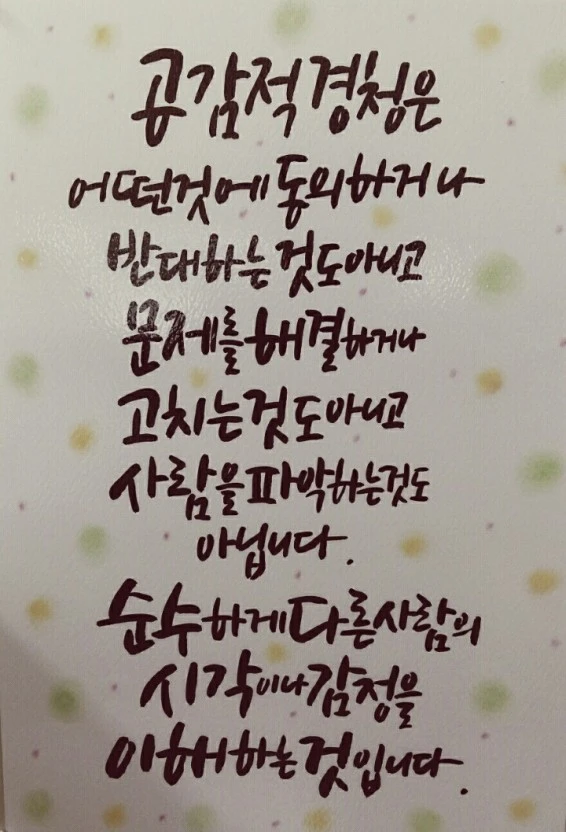 공감적 경청은
어떤것에 동의하거나
반대하는 것도 아니고
문제를 해결하거나
고치는것도 아니고
사람을 파악하는것도
아닙니다.
순수하게 다른사람의
시각이나 감정을
이해하는 것입니다.